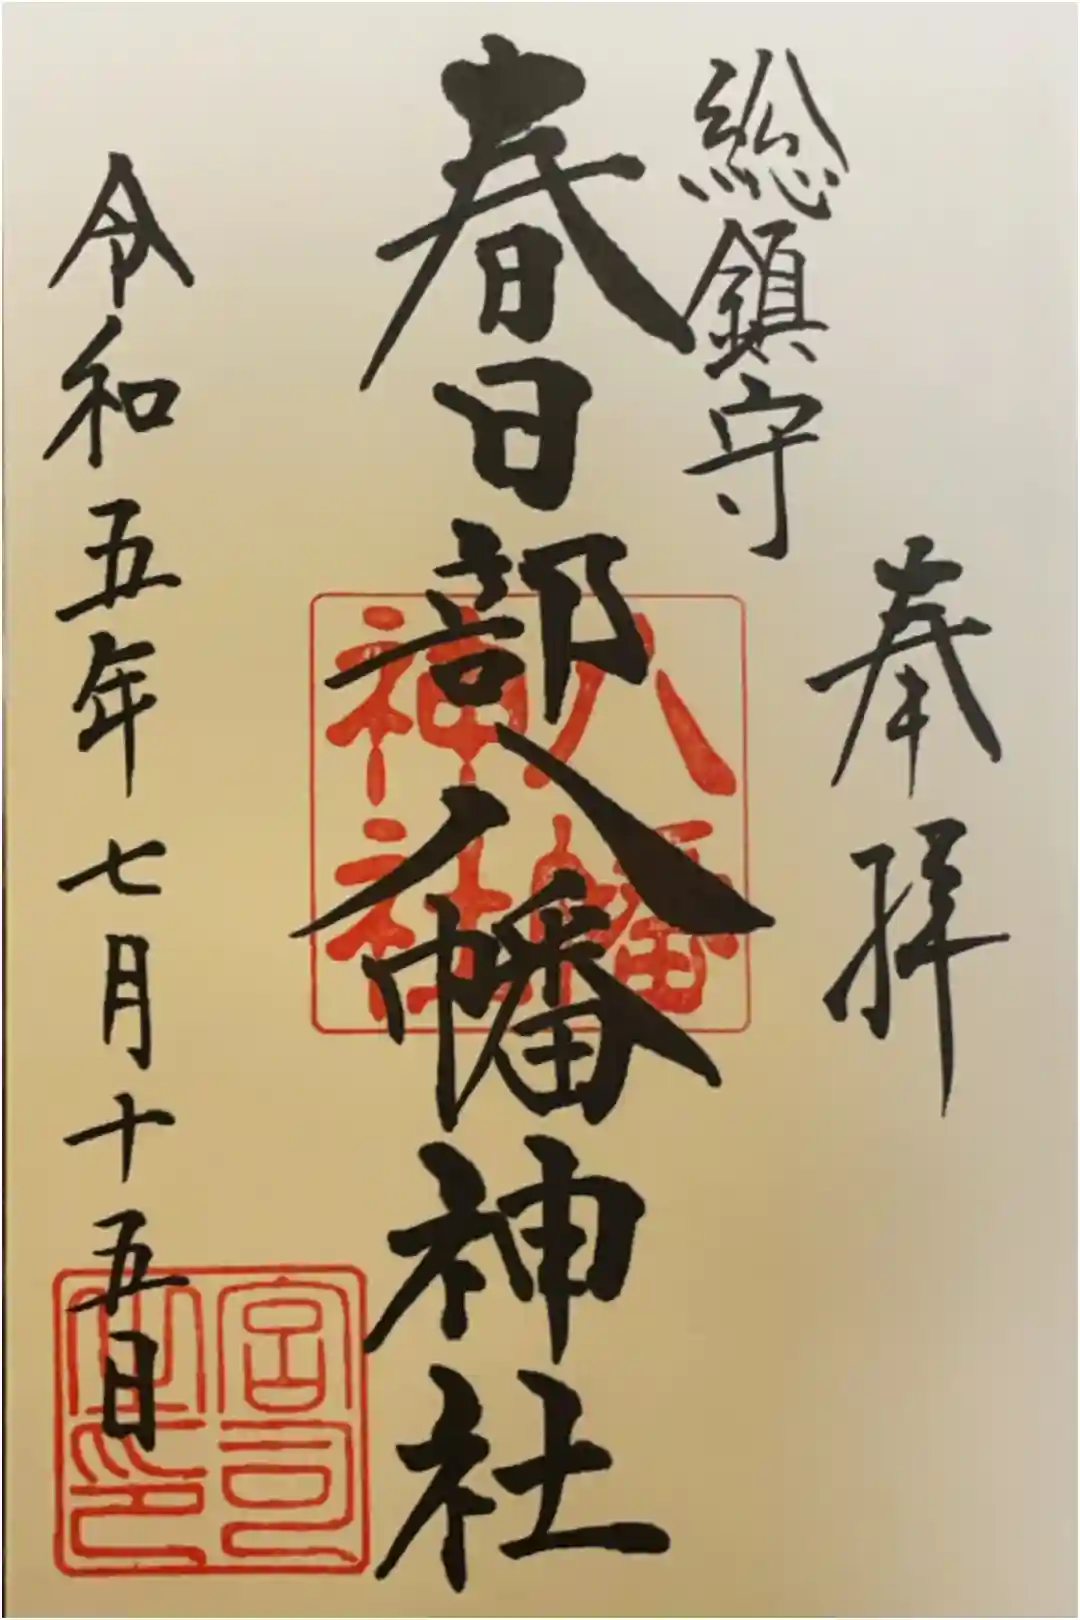 奉拝
総鎮守
春日部八幡神社
令和五年七月十五日
八幡
神社
宮司
之印